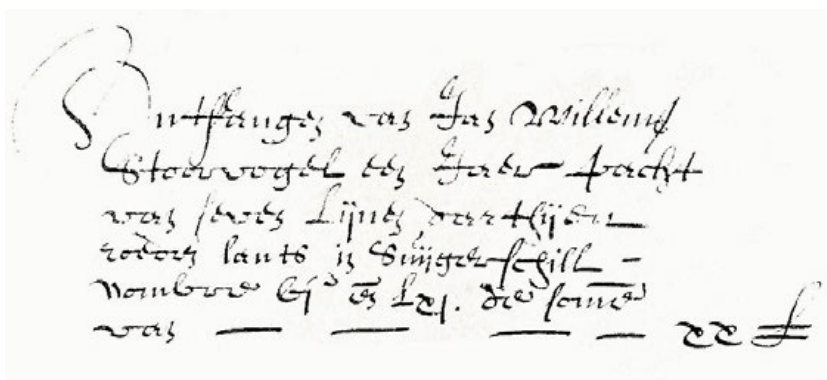 Ontfangen van Jan Willemsz
Stoervogel een Jaer pacht
van seven Lijnen darthijen
roeden lants in Suijgerschill –
nombre en Lxj. de somme
van — — — — xx £